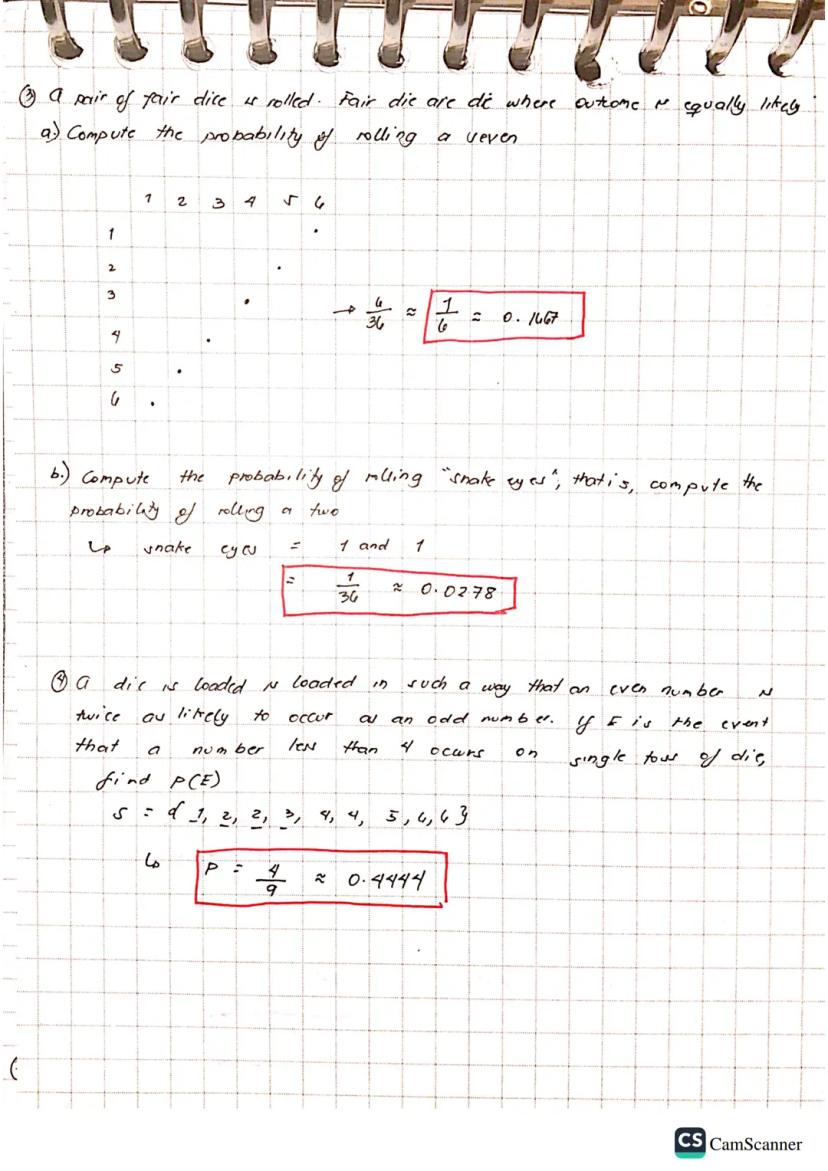 ③ A pair of fair dice is rolled. Fair die are die where outcome is equally likely
a) Compute the probability of rolling a seven
1 2 3 4 5 6
1
2
3
→ 6/36 ≈ 1/6 = 0.1667
4
5
6
b.) Compute the probability of rolling "snake eyes", that is, compute the
probability of rolling a two
↳ snake eyes = 1 and 1
= 1/36 ≈ 0.0278
④ A die is loaded is loaded in such a way that an even number is
twice as likely to occur as an odd number. If E is the event
that a number less than 4 occurs on single toss of die,
find P(E)
S = { 1, 2, 2, 3, 4, 4, 5, 6, 6 }
↳ P = 4/9 ≈ 0.4444
(
CS CamScanner